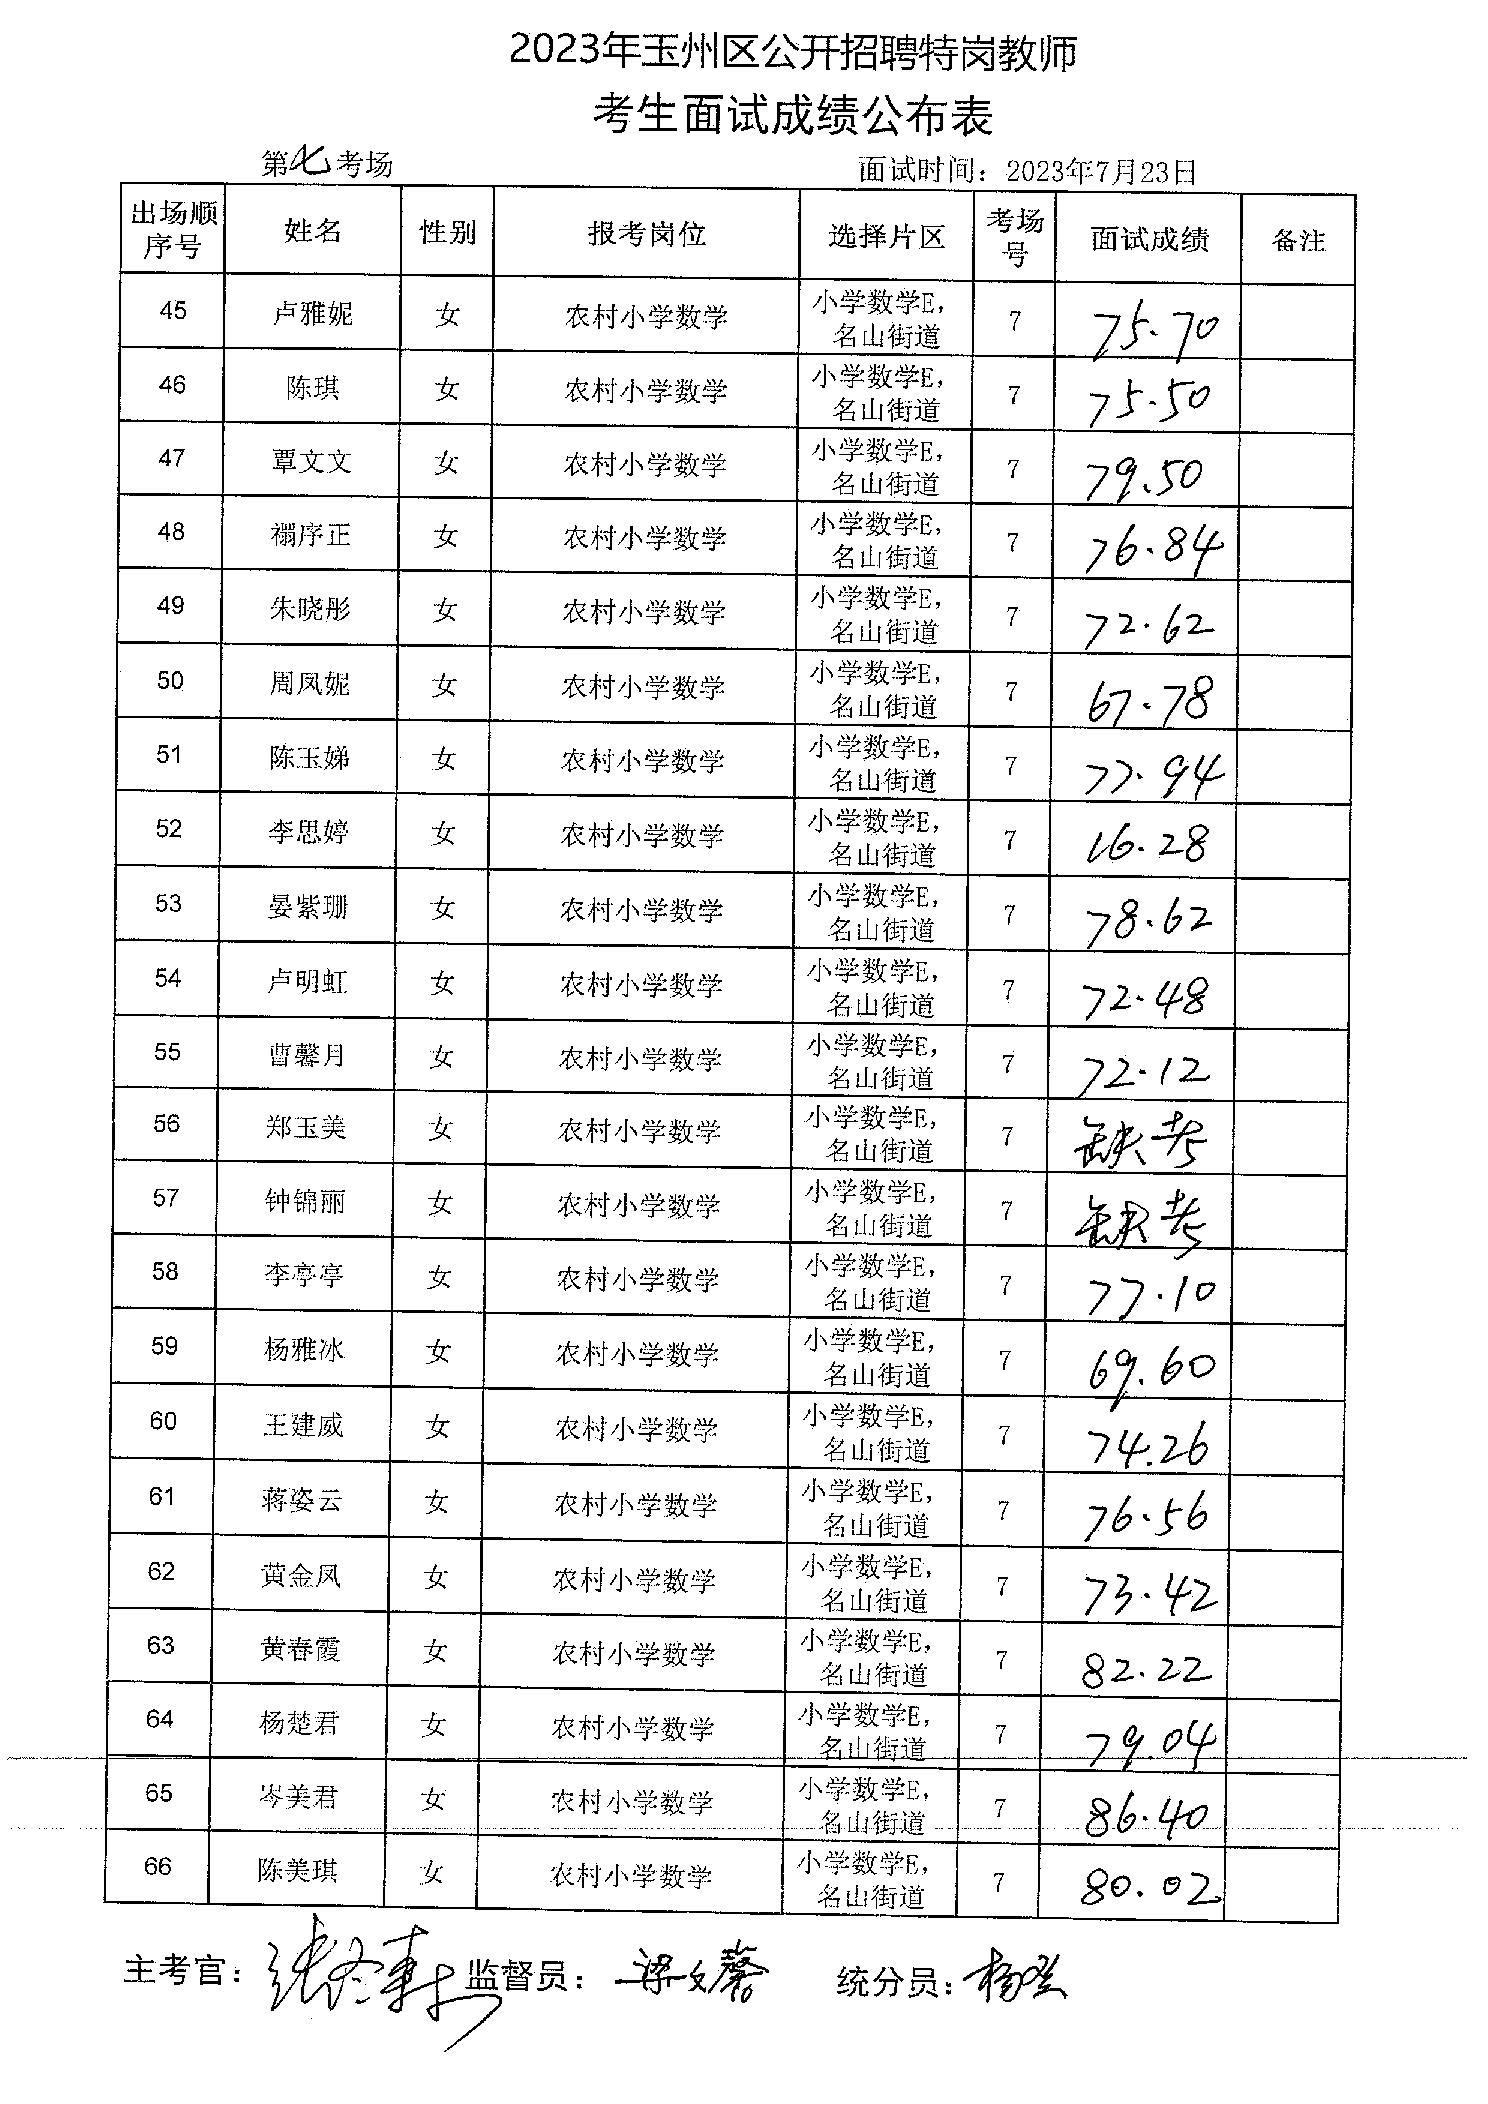 2023年玉州区公开招聘特岗教师
考生面试成绩公布表
第七考场 面试时间：2023年7月23日
出场顺序号 姓名 性别 报考岗位 选择片区 考场号 面试成绩 备注
45 卢雅妮 女 农村小学数学 小学数学E，名山街道 7 75.70
46 陈琪 女 农村小学数学 小学数学E，名山街道 7 75.50
47 覃文文 女 农村小学数学 小学数学E，名山街道 7 79.50
48 禤序正 女 农村小学数学 小学数学E，名山街道 7 76.84
49 朱晓彤 女 农村小学数学 小学数学E，名山街道 7 72.62
50 周凤妮 女 农村小学数学 小学数学E，名山街道 7 67.78
51 陈玉娣 女 农村小学数学 小学数学E，名山街道 7 77.94
52 李思婷 女 农村小学数学 小学数学E，名山街道 7 16.28
53 晏紫珊 女 农村小学数学 小学数学E，名山街道 7 78.62
54 卢明虹 女 农村小学数学 小学数学E，名山街道 7 72.48
55 曹馨月 女 农村小学数学 小学数学E，名山街道 7 72.12
56 郑玉美 女 农村小学数学 小学数学E，名山街道 7 缺考
57 钟锦丽 女 农村小学数学 小学数学E，名山街道 7 缺考
58 李亭亭 女 农村小学数学 小学数学E，名山街道 7 77.10
59 杨雅冰 女 农村小学数学 小学数学E，名山街道 7 69.60
60 王建威 女 农村小学数学 小学数学E，名山街道 7 74.26
61 蒋姿云 女 农村小学数学 小学数学E，名山街道 7 76.56
62 黄金凤 女 农村小学数学 小学数学E，名山街道 7 73.42
63 黄春霞 女 农村小学数学 小学数学E，名山街道 7 82.22
64 杨楚君 女 农村小学数学 小学数学E，名山街道 7 79.04
65 岑美君 女 农村小学数学 小学数学E，名山街道 7 86.40
66 陈美琪 女 农村小学数学 小学数学E，名山街道 7 80.02
主考官： 监督员：梁文馨 统分员：